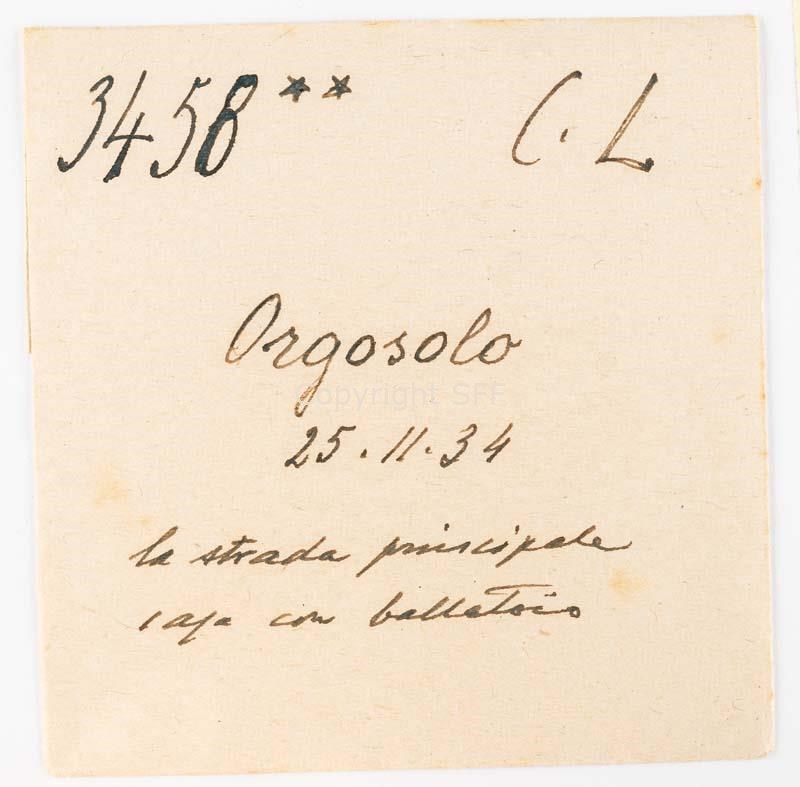 3458** C. L
Orgosolo
Copyright SFF
25.11.34
la strada principale
casa con ballatoio